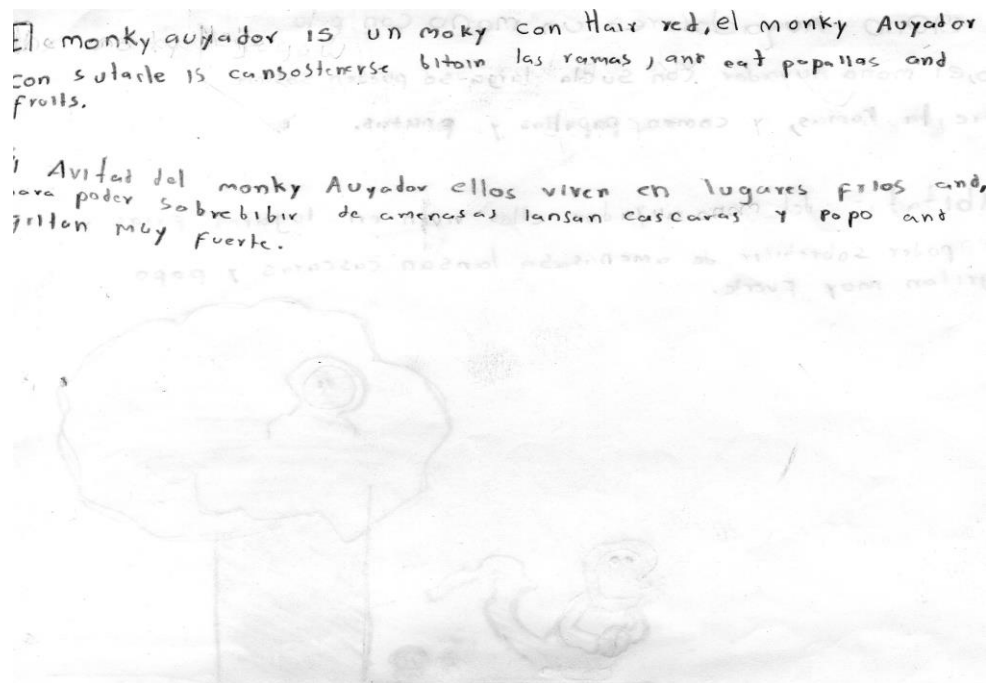 El monky auyador is un moky con Hair red, el monky Auyador
con sutaile is cansostenerse bitoin las ramas, and eat papallas and
froits.
Avitad del monky Auyador ellos viven en lugares frios and,
para poder sobrebibir de amenasas lansan cascaras y popo and
gritan muy fuerte.